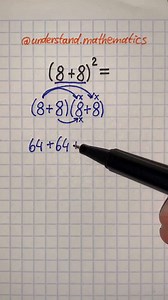 @understand.mathematics
(8+8)²=
(8+8)(8+8)
64+64+